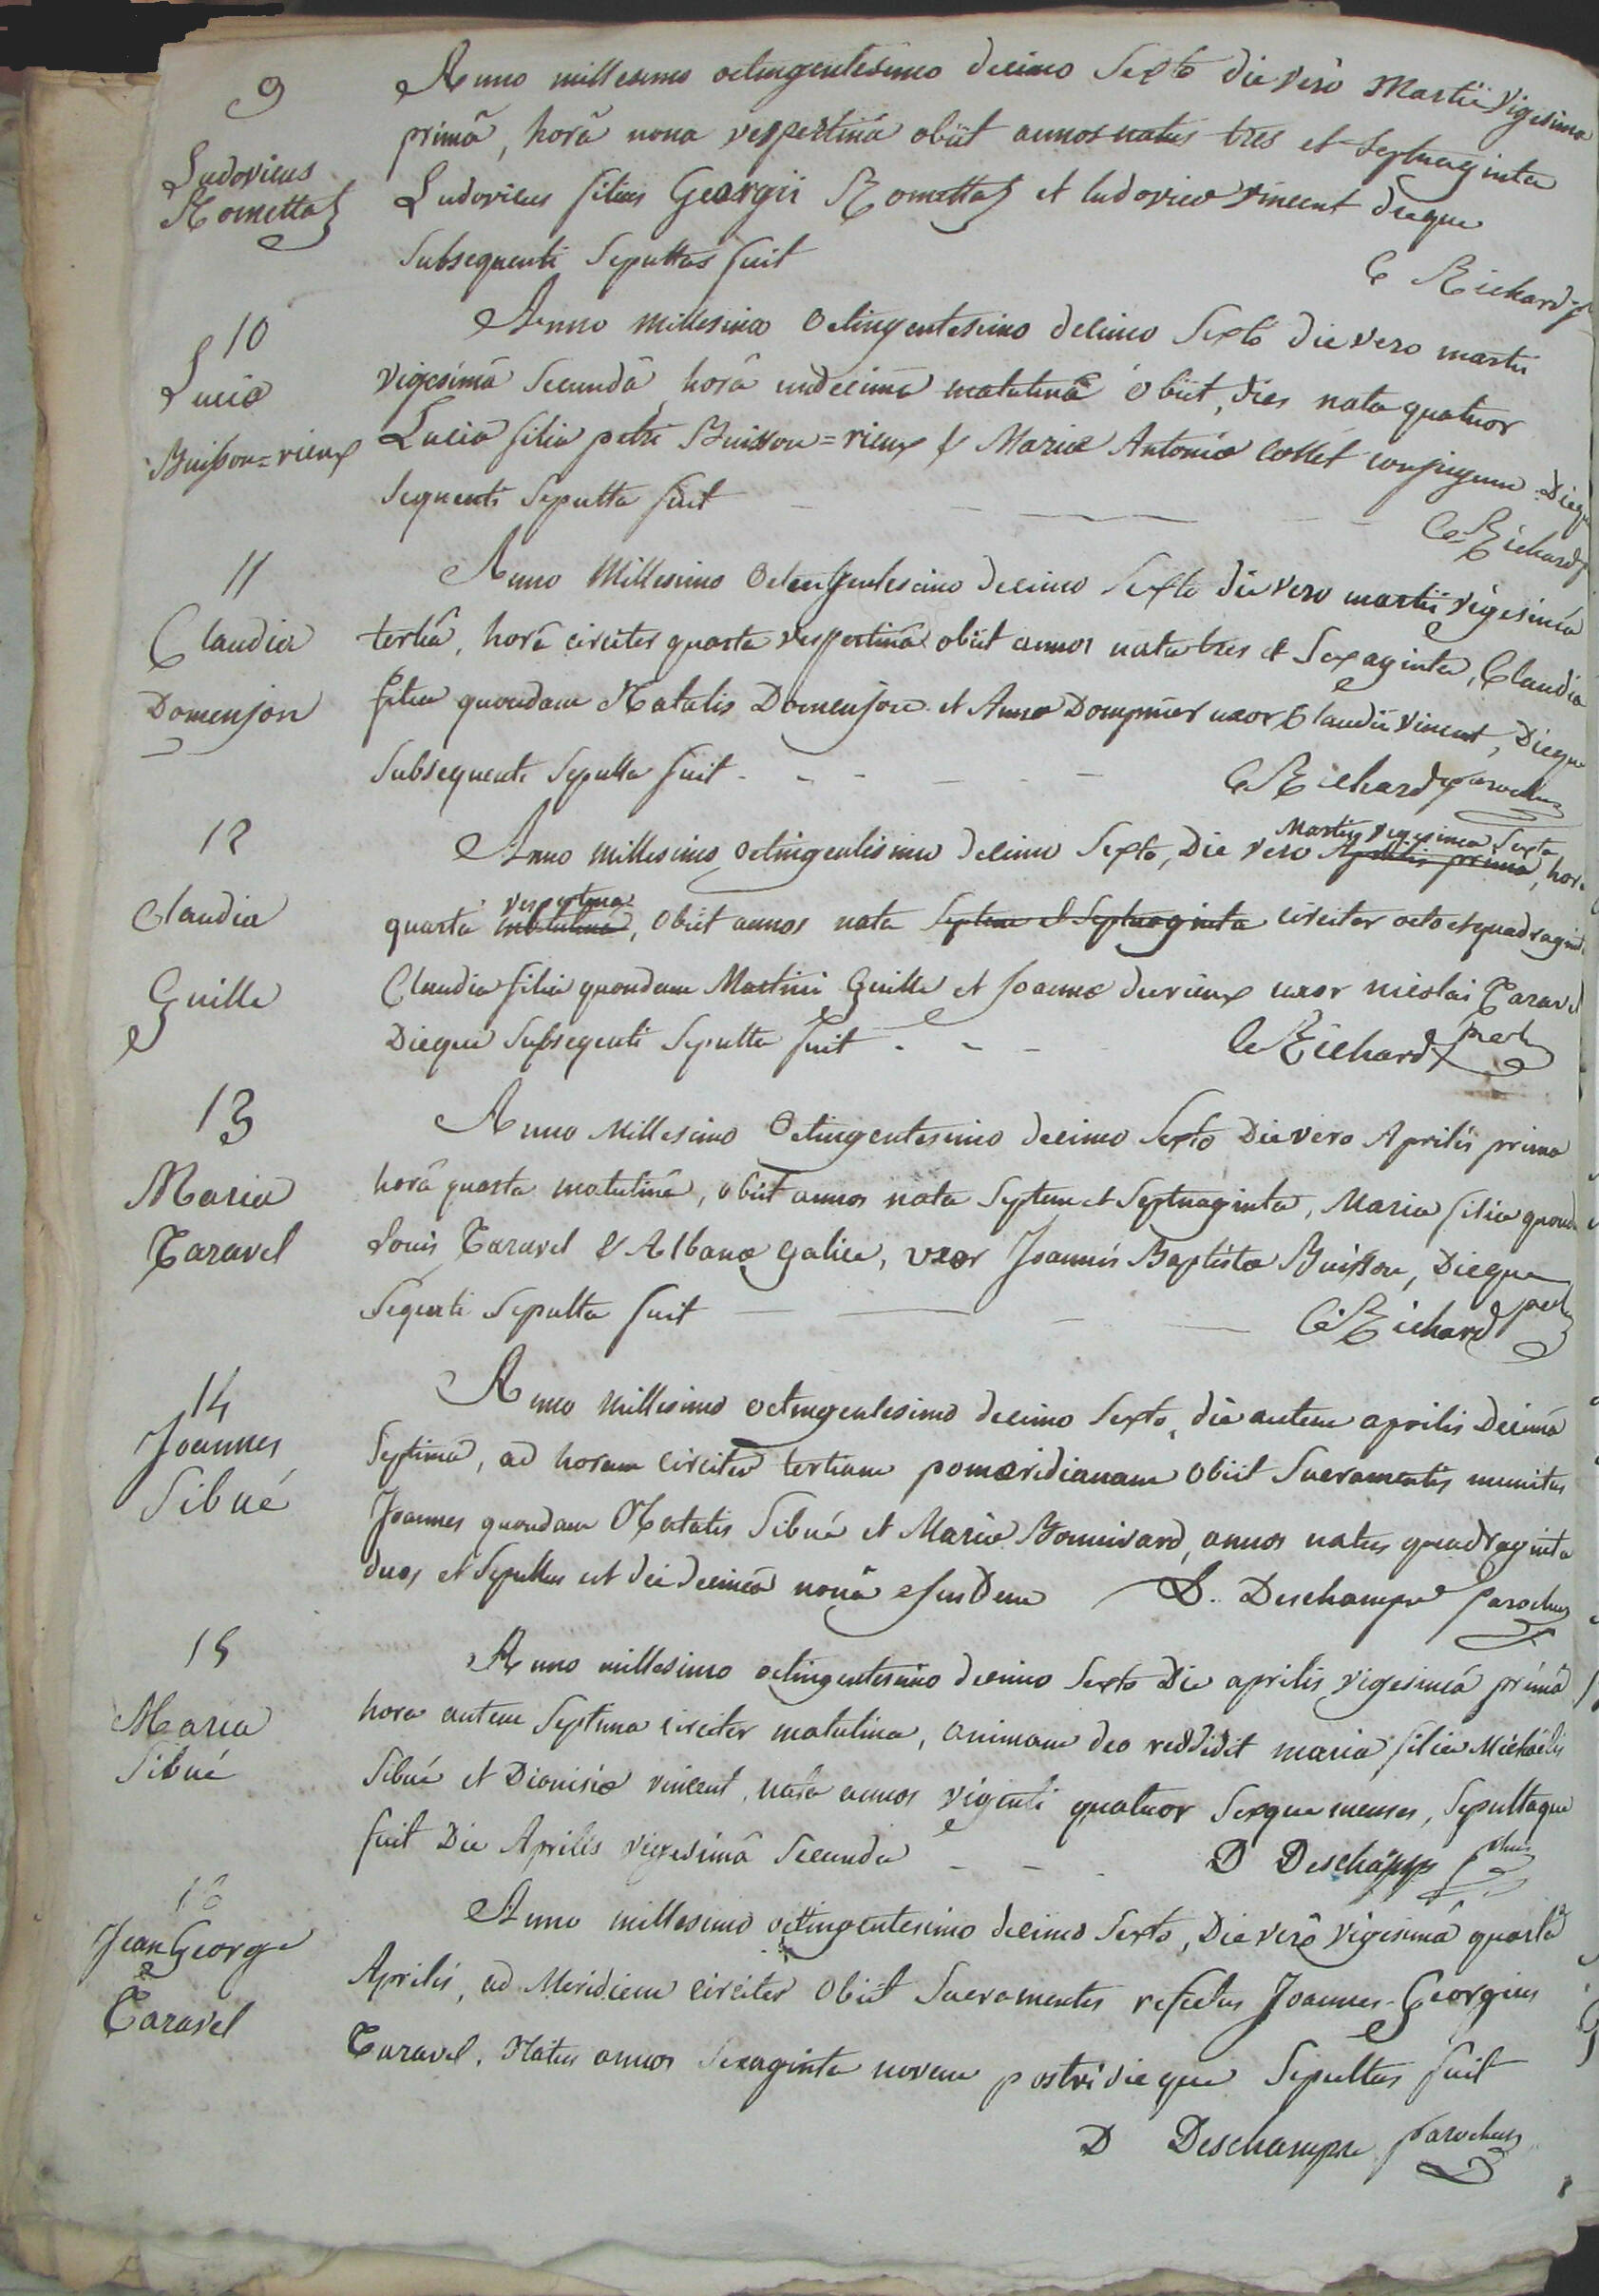 9
Ludovicus
Romettaz
Anno millesimo octingentesimo decimo Sexto die verò Martii Vigesima
primâ, horâ nona vespertinâ obiit annos natus tres et Septuaginta
Ludovicus filius Georgii Romettaz et ludovicæ Vincent dieque
Subsequenti Sepultus fuit
C Richard
10
Lucia
Buisson=rieux
Anno Millesimo Octingentesimo decimo Sexto die vero martii
vigesimâ Secundâ, horâ undecimâ matutinâ obiit, dies nata quatuor
Lucia filia petri Buisson=rieux & Mariæ Antoniæ Collet conjugum. Dieque
Sequenti Sepulta fuit
C Richard
11
Claudia
Domenjon
Anno Millesimo Octingentesimo decimo Sexto die vero martii vigesimâ
tertiâ, horâ circiter quarta vespertinâ obiit annos nata tres et Sexaginta, Claudia
filia quondam Natalis Domenjon et Annæ Dompnier uxor Claudii Vincent, Dieque
Subsequenti Sepulta fuit
C Richard parochus
12
Claudia
Guille
Martii vigesima Sexta
Anno Millesimo Octingentesimo decimo Sexto, Die vero Aprilis prima, hora
vespertina
quarta matutina, obiit annos nata Septem et Septuaginta circiter octo et quadraginta
Claudia filia quondam Martini Guille et Joannæ durieux uxor nicolai Taravel
Dieque Subseqenti Sepulta fuit
C Richard
13
Maria
Taravel
Anno Millesimo Octingentesimo decimo Sexto Die vero Aprilis prima
horâ quarta matutinâ, obiit annos nata Septem et Septuaginta, Maria filia quond
Louis Taravel & Albanæ Galice, uxor Joannis Baptistæ Buisson, Dieque
Seqenti Sepulta fuit
C Richard
14
Joannes
Sibué
Anno Millesimo octingentesimo decimo Sexto, die autem aprilis Decimâ
Septimâ, ad horam circiter tertiam pomæridianam obiit Sacramentis munitus
Joannes quondam Natalis Sibué et Mariæ Bonnivard, annos natus quadraginta
duos et Sepultus est die decimâ nonâ ejusdem
D. Deschamps parochus
15
Maria
Sibué
Anno millesimo octingentesimo decimo Sexto Die aprilis vigesimâ primâ
hora autem Septima circiter matutina, animam deo reddidit maria filia Michaëlis
Sibué et Dionisiæ vincent, nata annos viginti quatuor Sexque menses, Sepultaque
fuit Die Aprilis vigesimâ Secunda
D Deschamps
16
Jean George
Taravel
Anno millesimo octingentesimo decimo Sexto, Die verò vigesimâ quartâ
Aprilis, ad Meridiem circiter obiit Sacramentis refectus Joannes-Georgius
Taravel, Natus annos Sexaginta novem postridieque Sepultus fuit
D Deschamps parochus